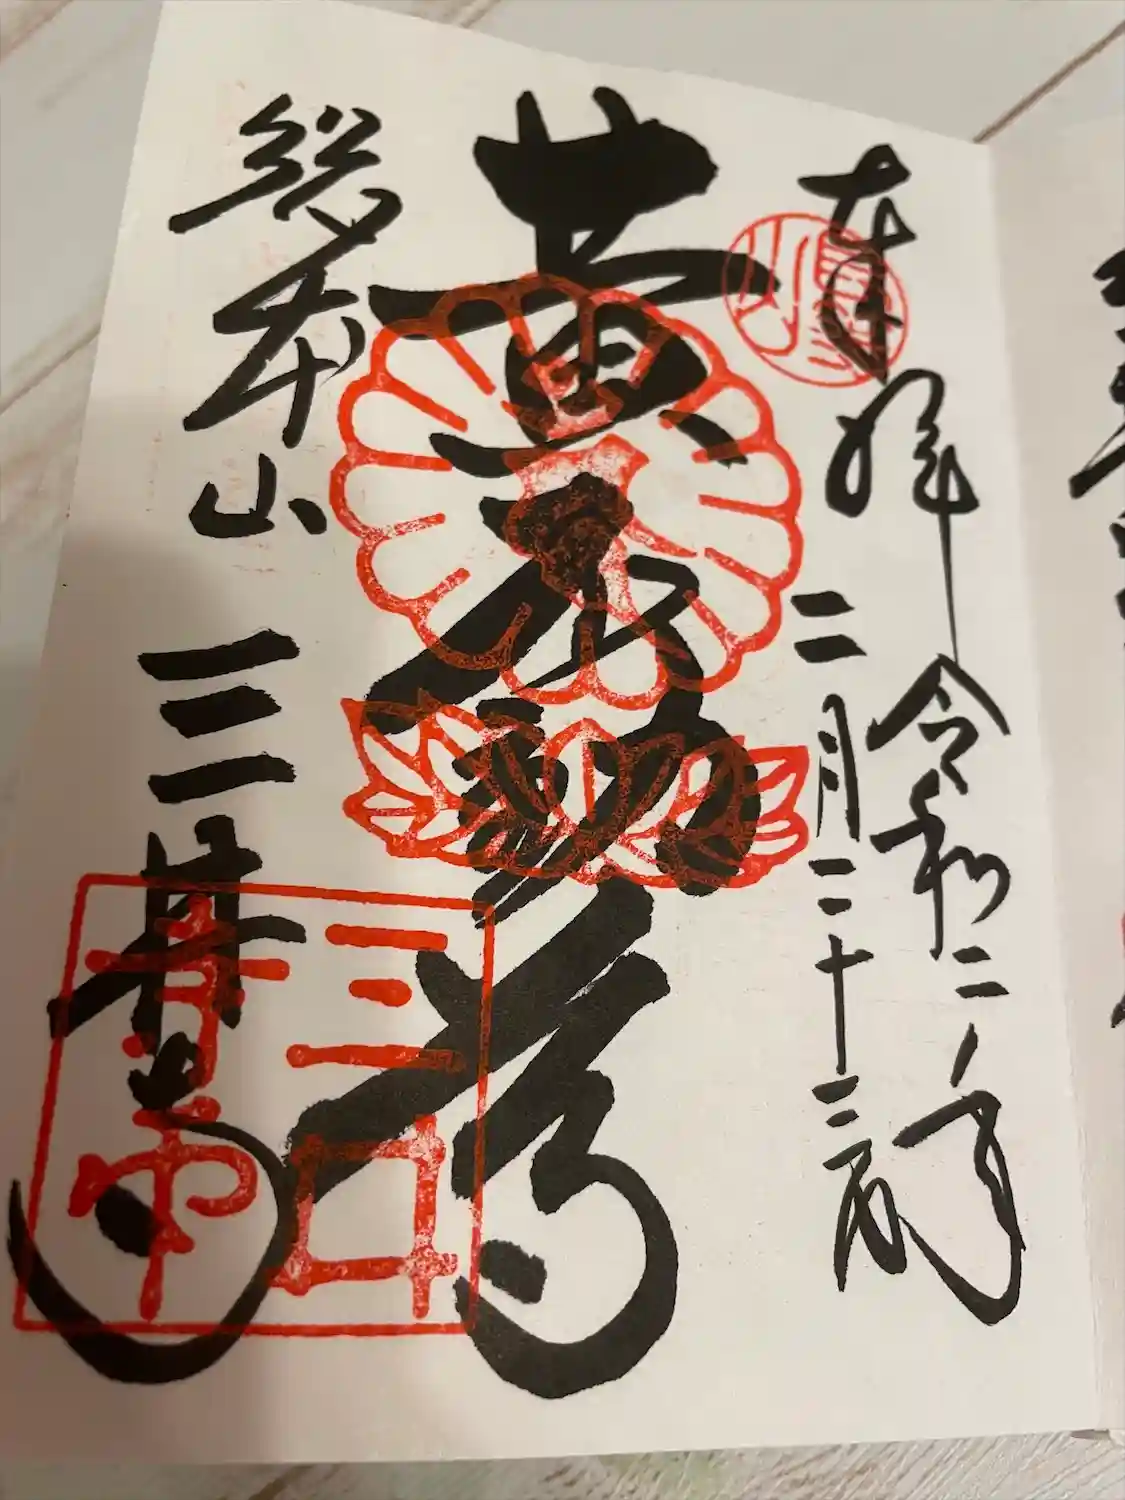 奉拝
令和二年
二月二十三日
黄不動尊
総本山 三井寺